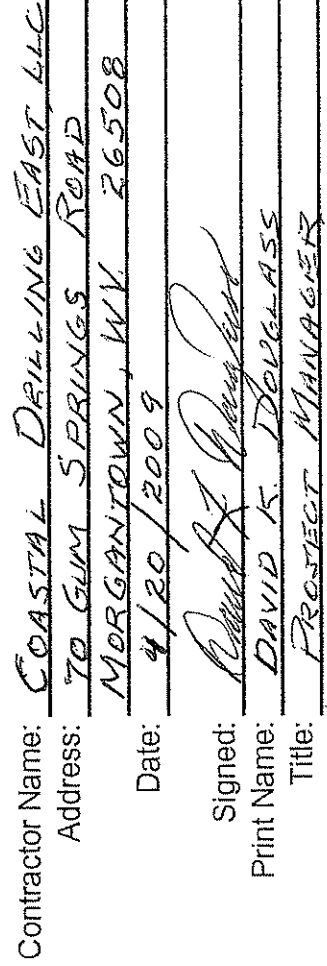 Contractor Name: COASTAL DRILLING EAST, LLC
Address: 70 GUM SPRINGS ROAD
MORGANTOWN, WV. 26508
Date: 4/20/2009
Signed: David K Douglass
Print Name: DAVID K. DOUGLASS
Title: PROJECT MANAGER